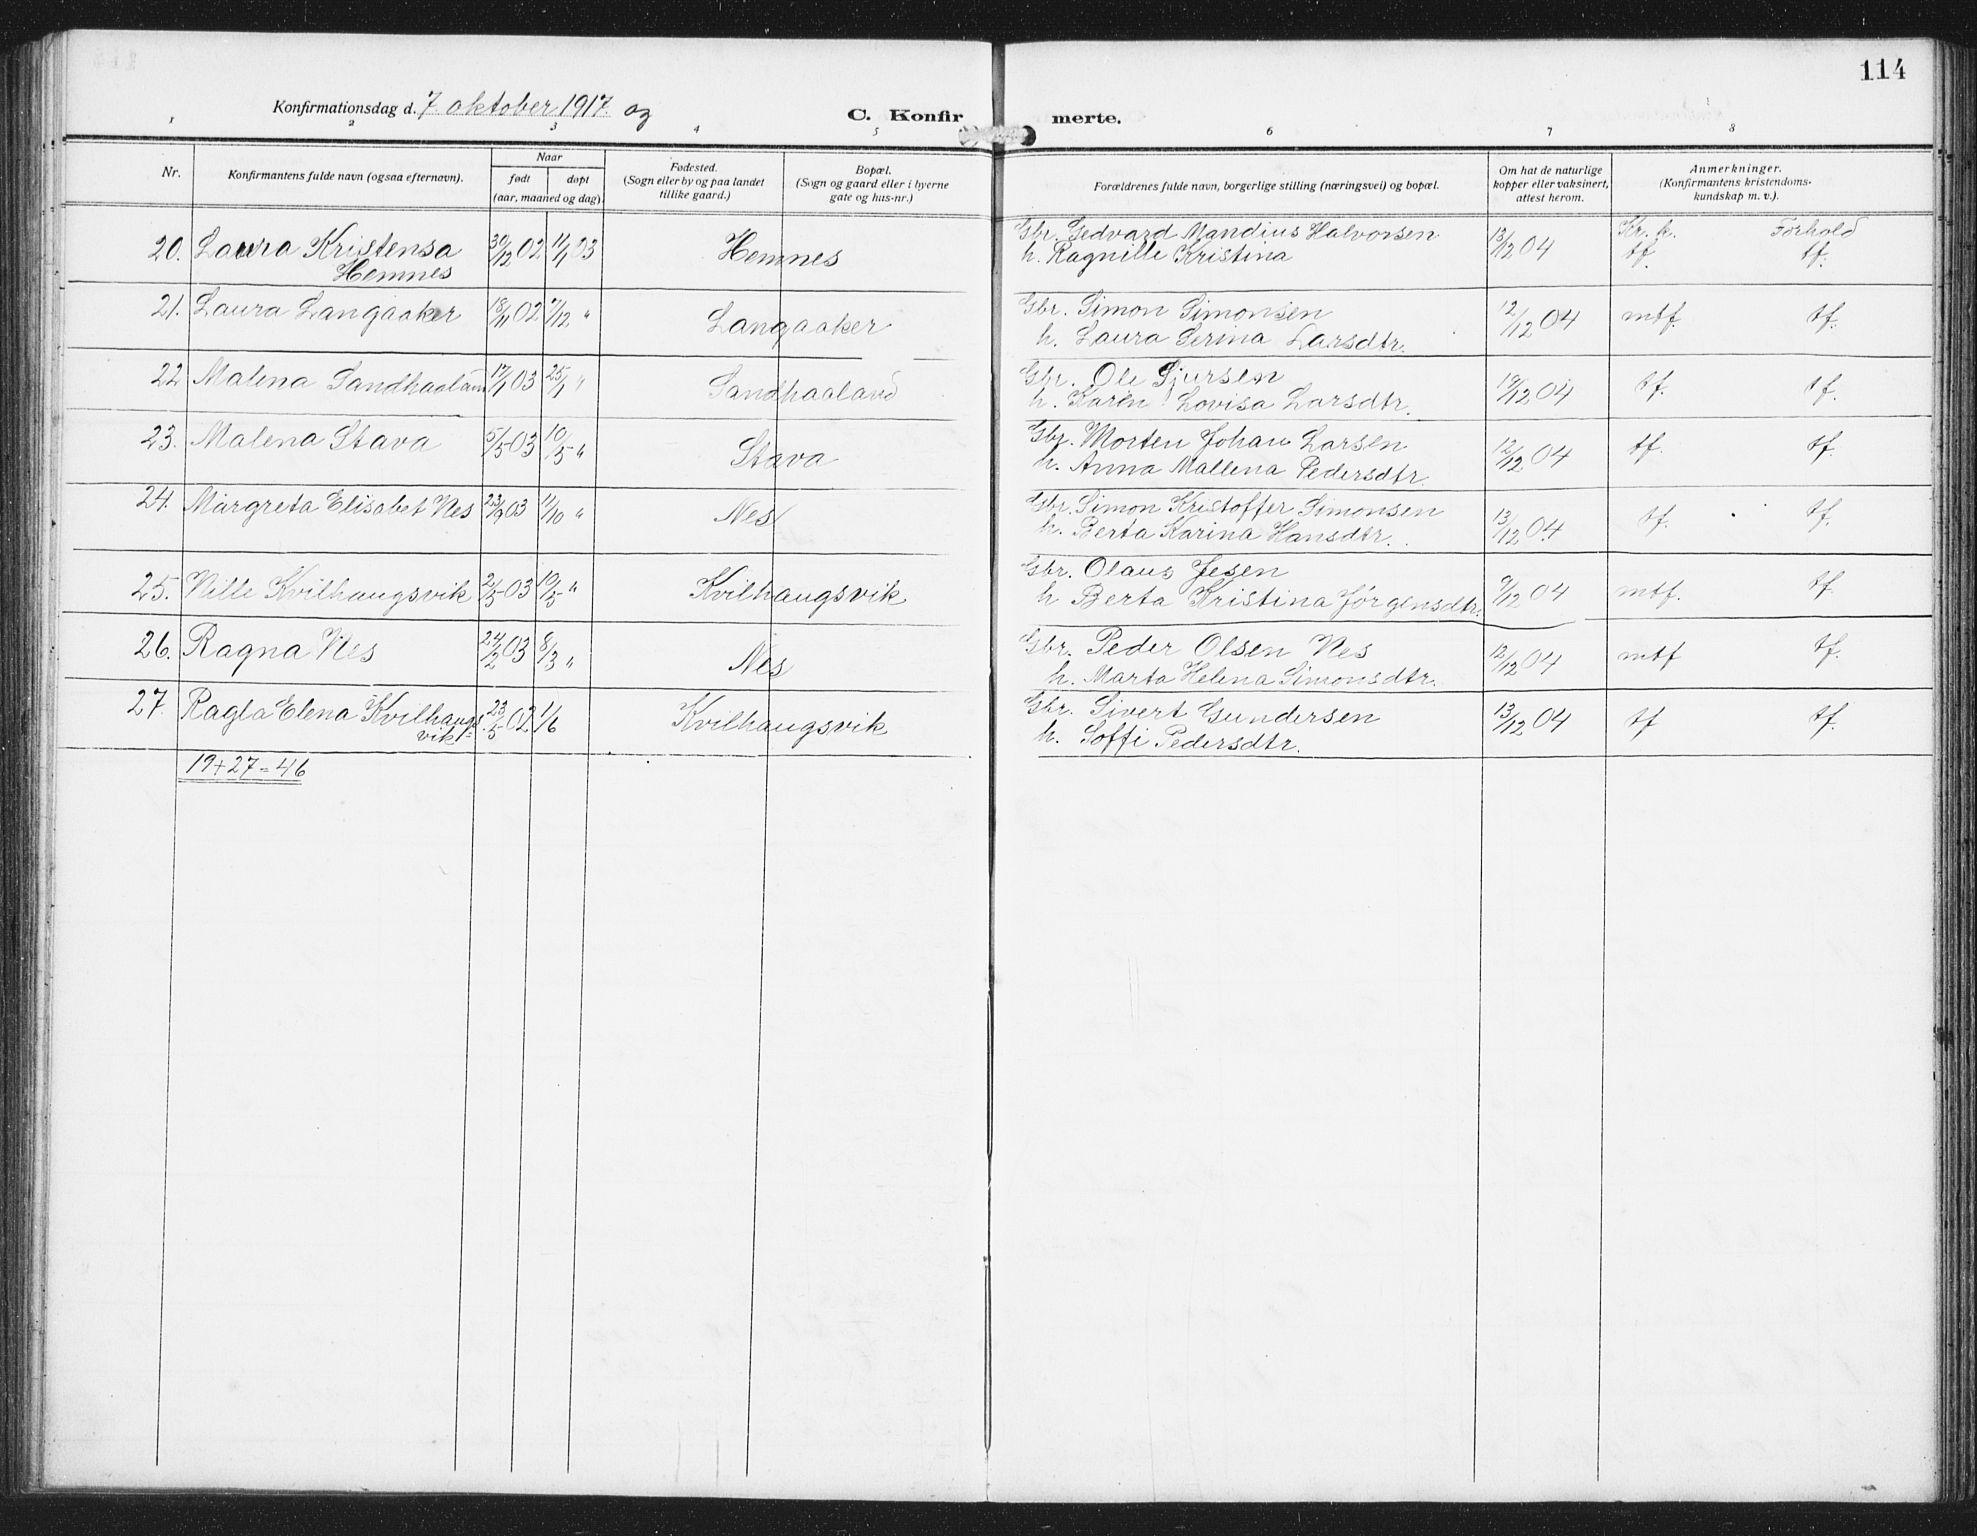 114
Konfirmationsdag d. 7 oktober 1917 og
C. Konfirmerte.
1 2 3 4 5 6 7 8
Nr.
Konfirmantens fulde navn (ogsaa efternavn).
Naar
født døpt
(aar, maaned og dag).
Fødested.
(Sogn eller by og paa landet
tillike gaard.)
Bopæl.
(Sogn og gaard eller i byerne
gate og hus-nr.)
Forældrenes fulde navn, borgerlige stilling (næringsvei) og bopæl.
Om hat de naturlige
kopper eller vaksinert,
attest herom.
Anmerkninger.
(Konfirmantens kristendoms-
kundskap m. v.).
Kr. k. Forhold
20. Laura Kristensa 30/12 02 11/1 03 Hemnes Gbr. Gedvard Mandius Halvorsen 13/12 04 tf. tf.
Hemnes h. Ragnille Kristina
21. Laura Langaaker 18/11 02 7/12 " Langaaker Gbr. Simon Simonsen 12/12 04 mtf. tf.
h. Laura Serina Larsdtr.
22 Malena Sandhaaland 17/1 03 25/1 " Sandhaaland Gbr. Ole Sjursen 19/12 04 tf. tf.
h. Karen Lovisa Larsdtr.
23. Malena Stava 5/5 03 10/5 " Stava Gbr. Morten Johan Larsen 12/12 04 tf. tf.
h. Anna Mallena Pedersdtr.
24. Margreta Elisabet Nes 23/9 03 11/10 " Nes Gbr. Simon Kristoffer Simonsen 13/12 04. tf. tf.
h. Berta Karina Hansdtr.
25. Nille Kvilhaugsvik 2/5 03 10/5 " Kvilhaugsvik Gbr. Olaus Jesen 9/12 04 mtf. tf.
h Berta Kristina Jørgensdtr.
26. Ragna Nes 24/2 03 8/3 " Nes Gbr. Peder Olsen Nes 12/12 04 mtf tf.
h. Marta Helena Simonsdtr.
27. Ragla Elena Kvilhaugs- 23/5 02 1/6 Kvilhaugsvik Gbr. Sivert Gundersen 13/12 04 tf tf.
vik h. Soffi Pedersdtr.
19+27=46